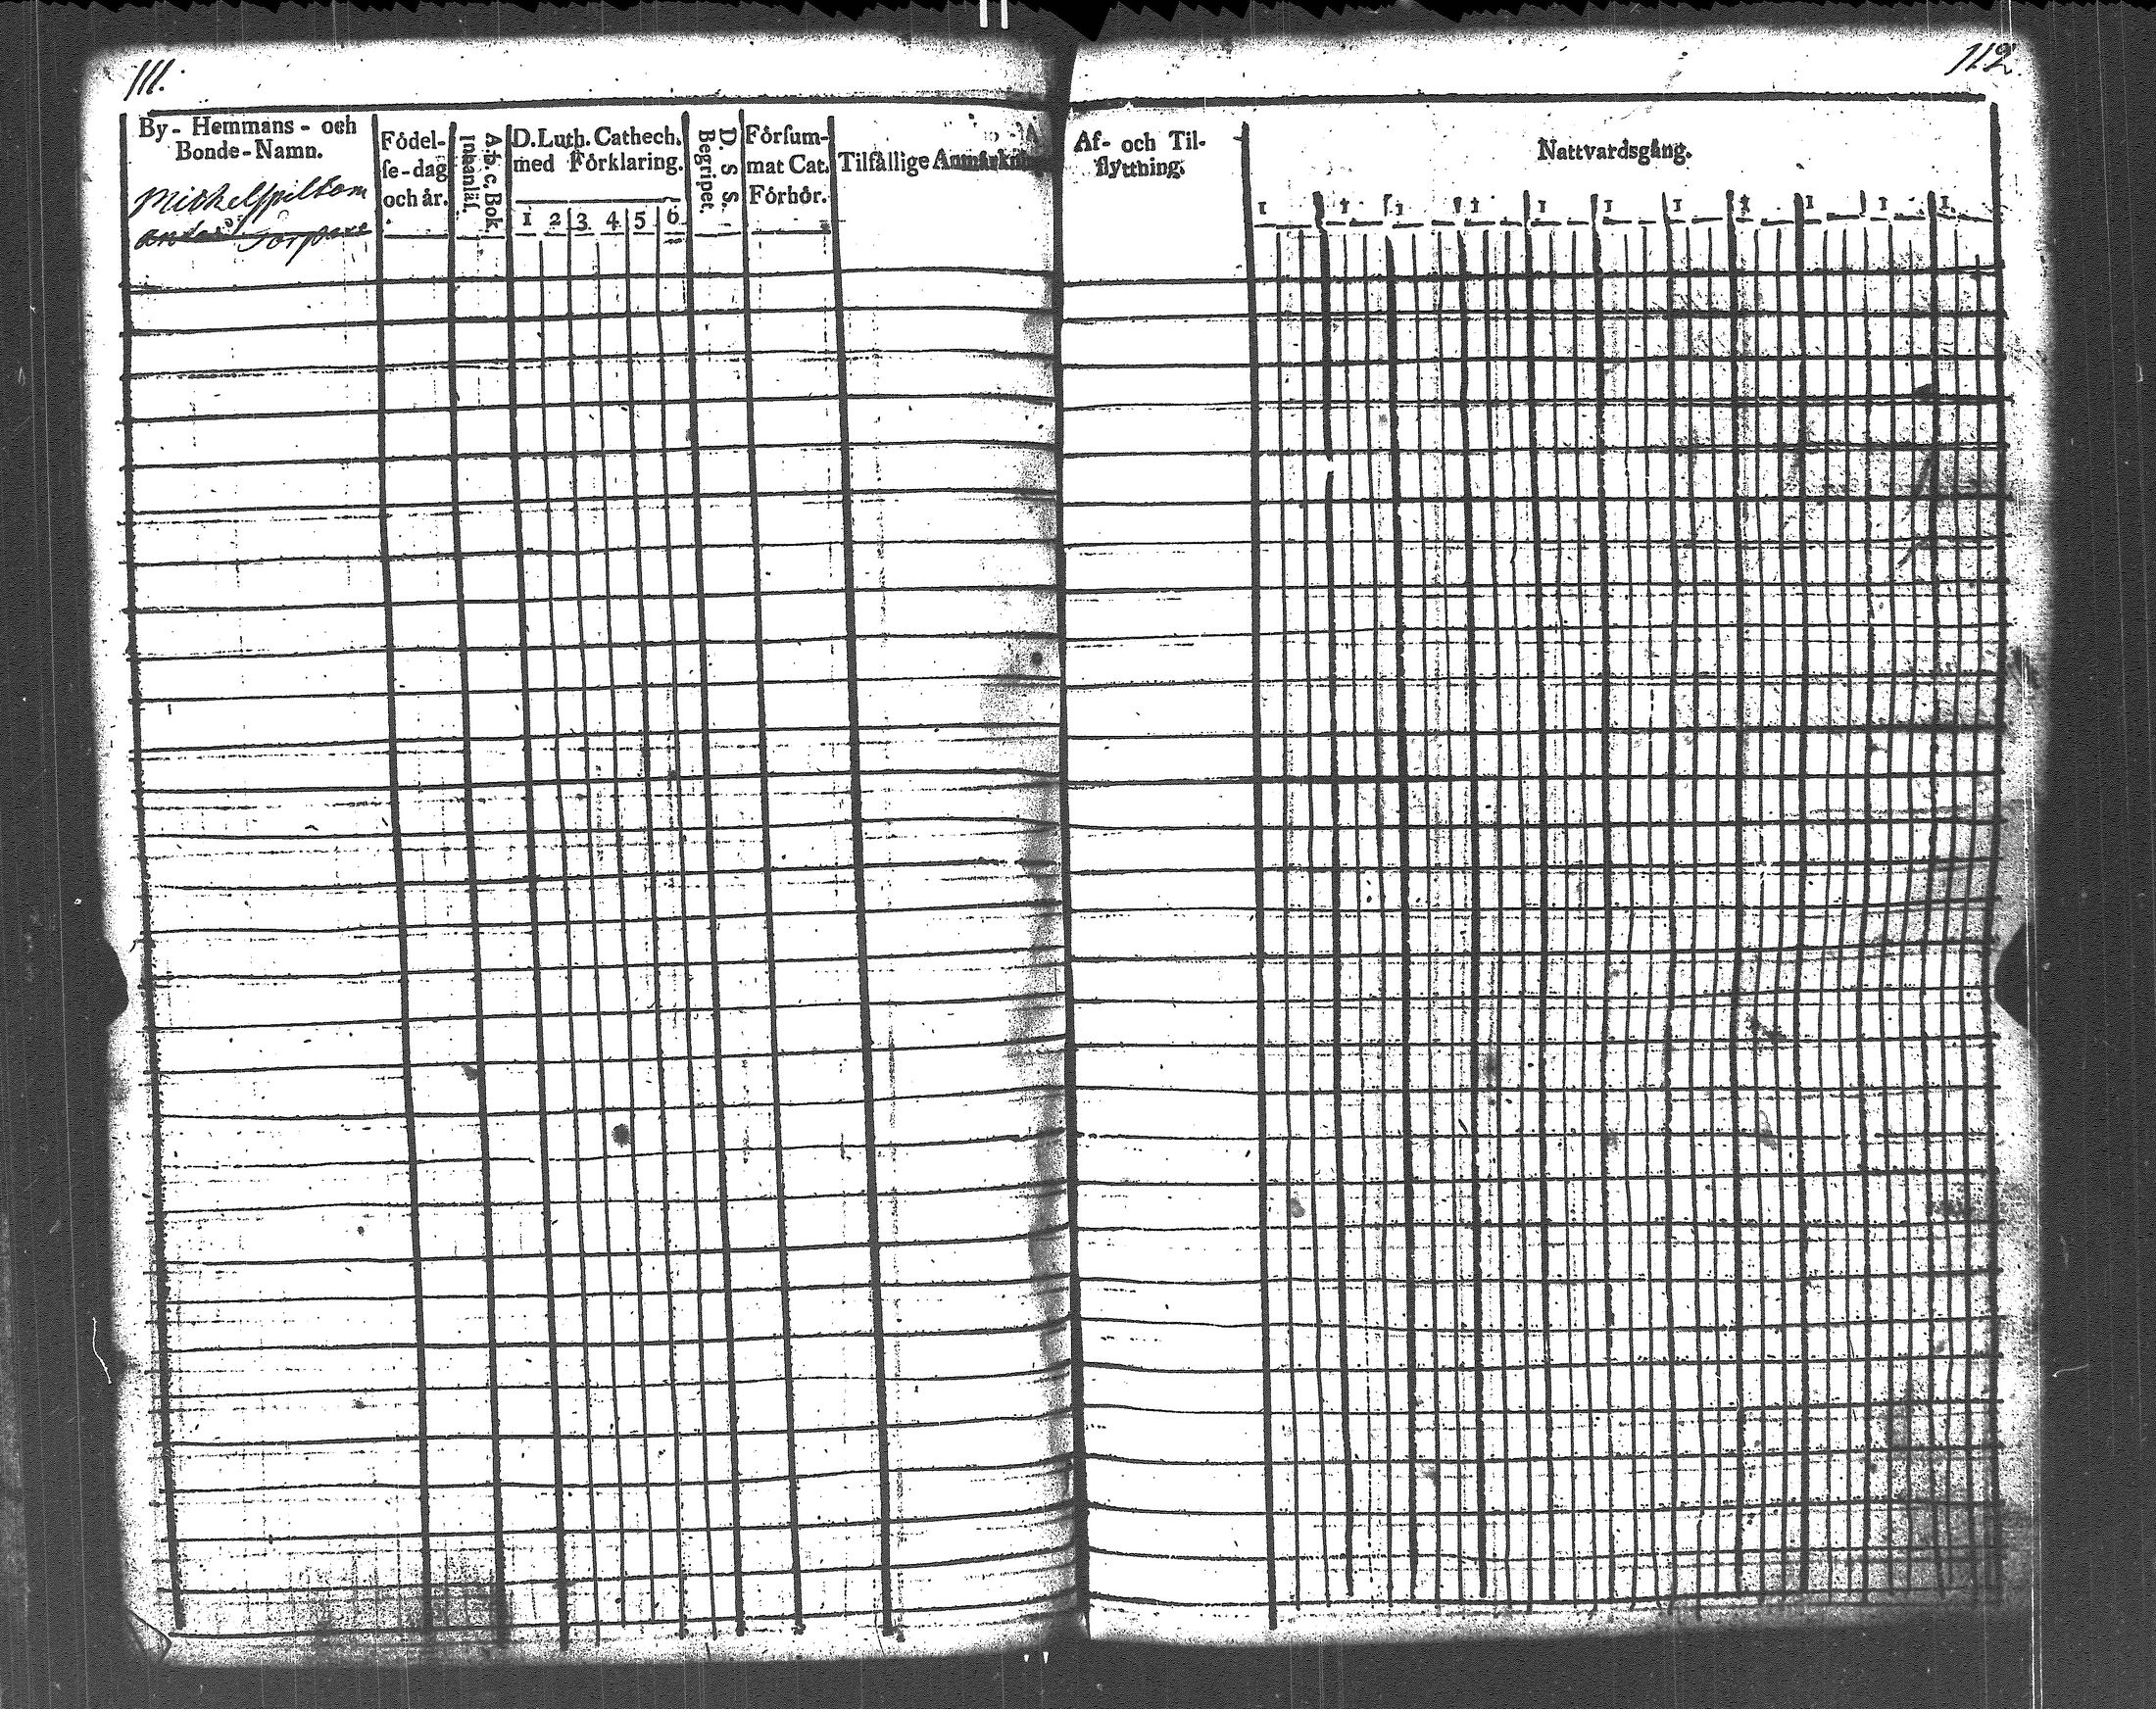 111.
112.
By- Hemmans- och
Bonde-Namn.
Mickelspiltom
Torpare
Födel-
se-dag
och år.
A.b.c.Bok
Innanläs.
D.Luth. Cathech.
med Förklaring.
1 2 3 4 5 6
D. S. S.
Begripet.
Försum-
mat Cat.
Förhör.
Tilfällige Anmärkn
Af- och Til-
flyttning.
Nattvardsgång.
1 1 1 1 1 1 1 1 1 1 1